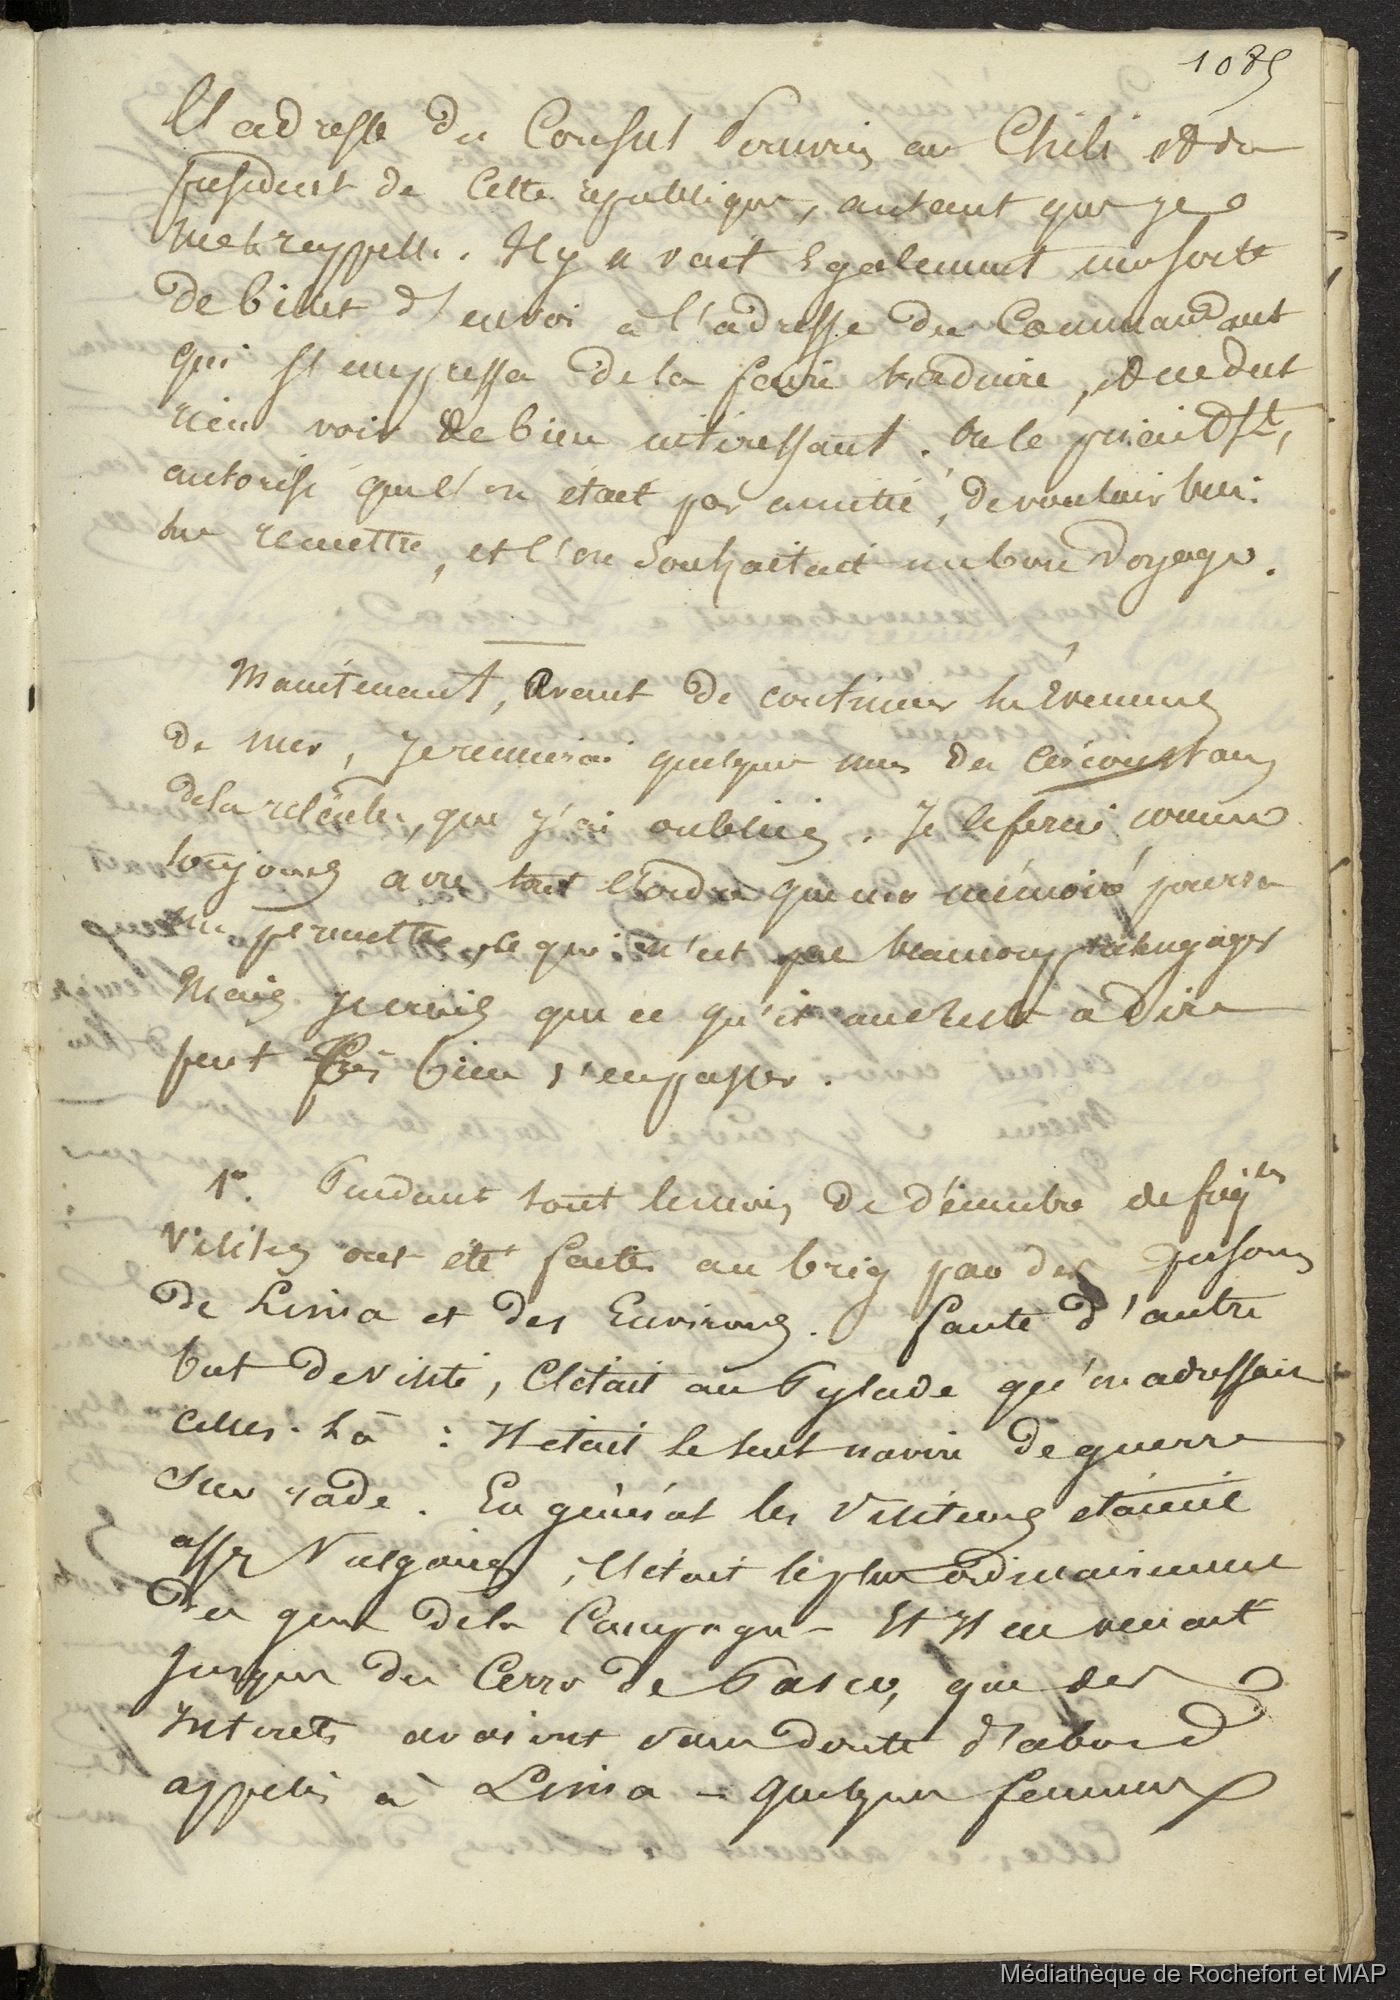 1085
l'adresse du Consul Péruvien au Chili et du
président de cette république, autant que je
me le rappelle. Il y avait également une sorte
de billet d'envoi à l'adresse du Commandant
qui s'empressa de la faire traduire, et ne dut
rien voir de bien intéressant. On le priait,
autorisé que l'on était par amitié, de vouloir bien
les remettre, et l'on souhaitait un bon voyage.
Maintenant, Avant de continuer les Evénemens
de mer, je réunirai quelques unes des circonstances
de la relâche, que j'ai oubliées. Je le ferai comme
toujours avec tout l'ordre que ma mémoire pourra
me permettre, ce qui n'est pas beaucoup m'engager
Mais je crois que ce qu'il me reste à dire
peut très bien s'en passer.
1°. Pendant tout le mois de décembre de frég.tes
Visites ont été faites au brig par des personnes
de Lima et des Environs. Faute d'autre
but de visite, C'était au Pylade qu'on adressait
celles-là : Il était le seul navire de guerre
sur rade. En général les Visiteurs étaient
assez Vulgaires, C'était le plus ordinairement
des gens de la Campagne — Et Il en venait
jusques du Cerro de Pasco, que des
intérêts avaient sans doute d'abord
appelés à Lima — quelques femmes
Médiathèque de Rochefort et MAP